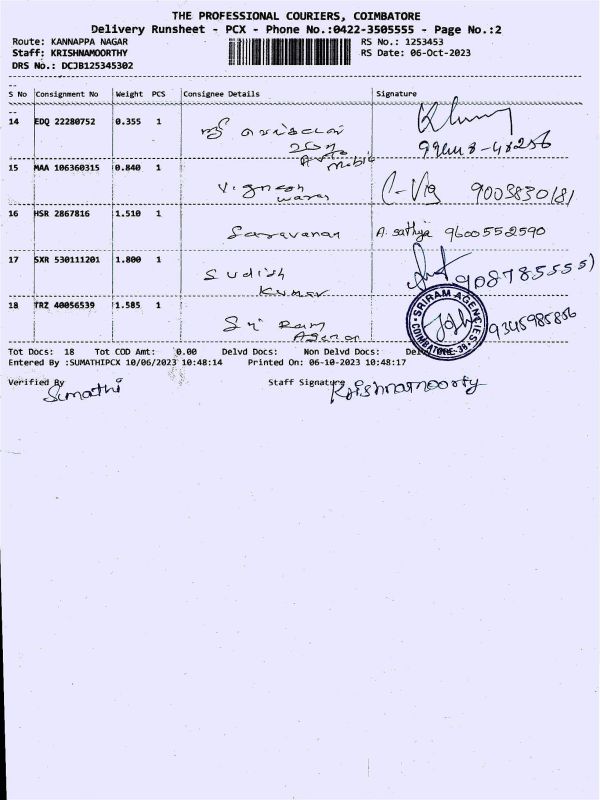 THE PROFESSIONAL COURIERS, COIMBATORE
Delivery Runsheet - PCX - Phone No.:0422-3505555 - Page No.:2
Route: KANNAPPA NAGAR RS No.: 1253453
Staff: KRISHNAMOORTHY RS Date: 06-Oct-2023
DRS No.: DCJB125345302
S No Consignment No Weight PCS Consignee Details Signature
14 EDQ 22280752 0.355 1
Auto
mobile
15 MAA 106360315 0.840 1
Vignesh
waran C-Vig 9003830181
16 HSR 2867816 1.510 1
Saravanan A. sathya 9600552590
17 SXR 530111201 1.800 1
Sudish
Kumar
18 TRZ 40056539 1.585 1
Sri Ram
SRIRAM AGENCIES
COIMBATORE-38 9345985856
Tot Docs: 18 Tot COD Amt: 0.00 Delvd Docs: Non Delvd Docs:
Entered By :SUMATHIPCX 10/06/2023 10:48:14 Printed On: 06-10-2023 10:48:17
Verified By Staff Signature
Sumathi Krishnamoorty